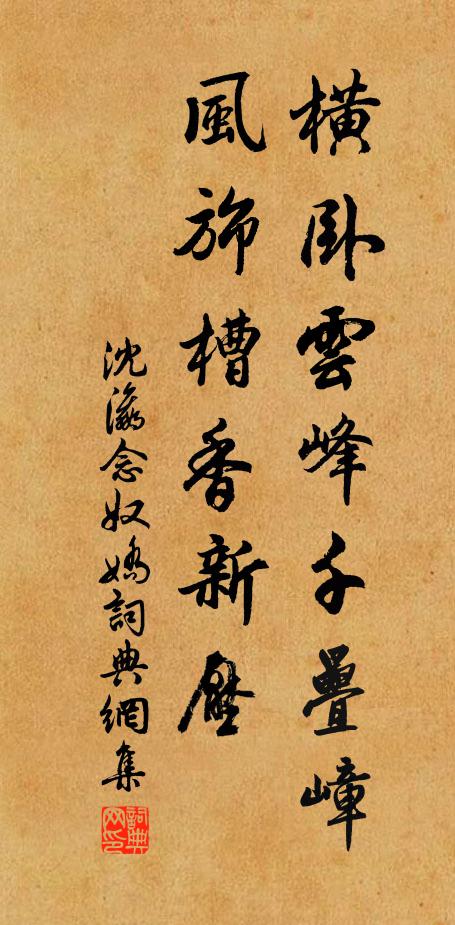 橫卧雲峰千疊嶂
風斾槽香新壓
沈瀛念奴嬌詞典網集
詞典网印